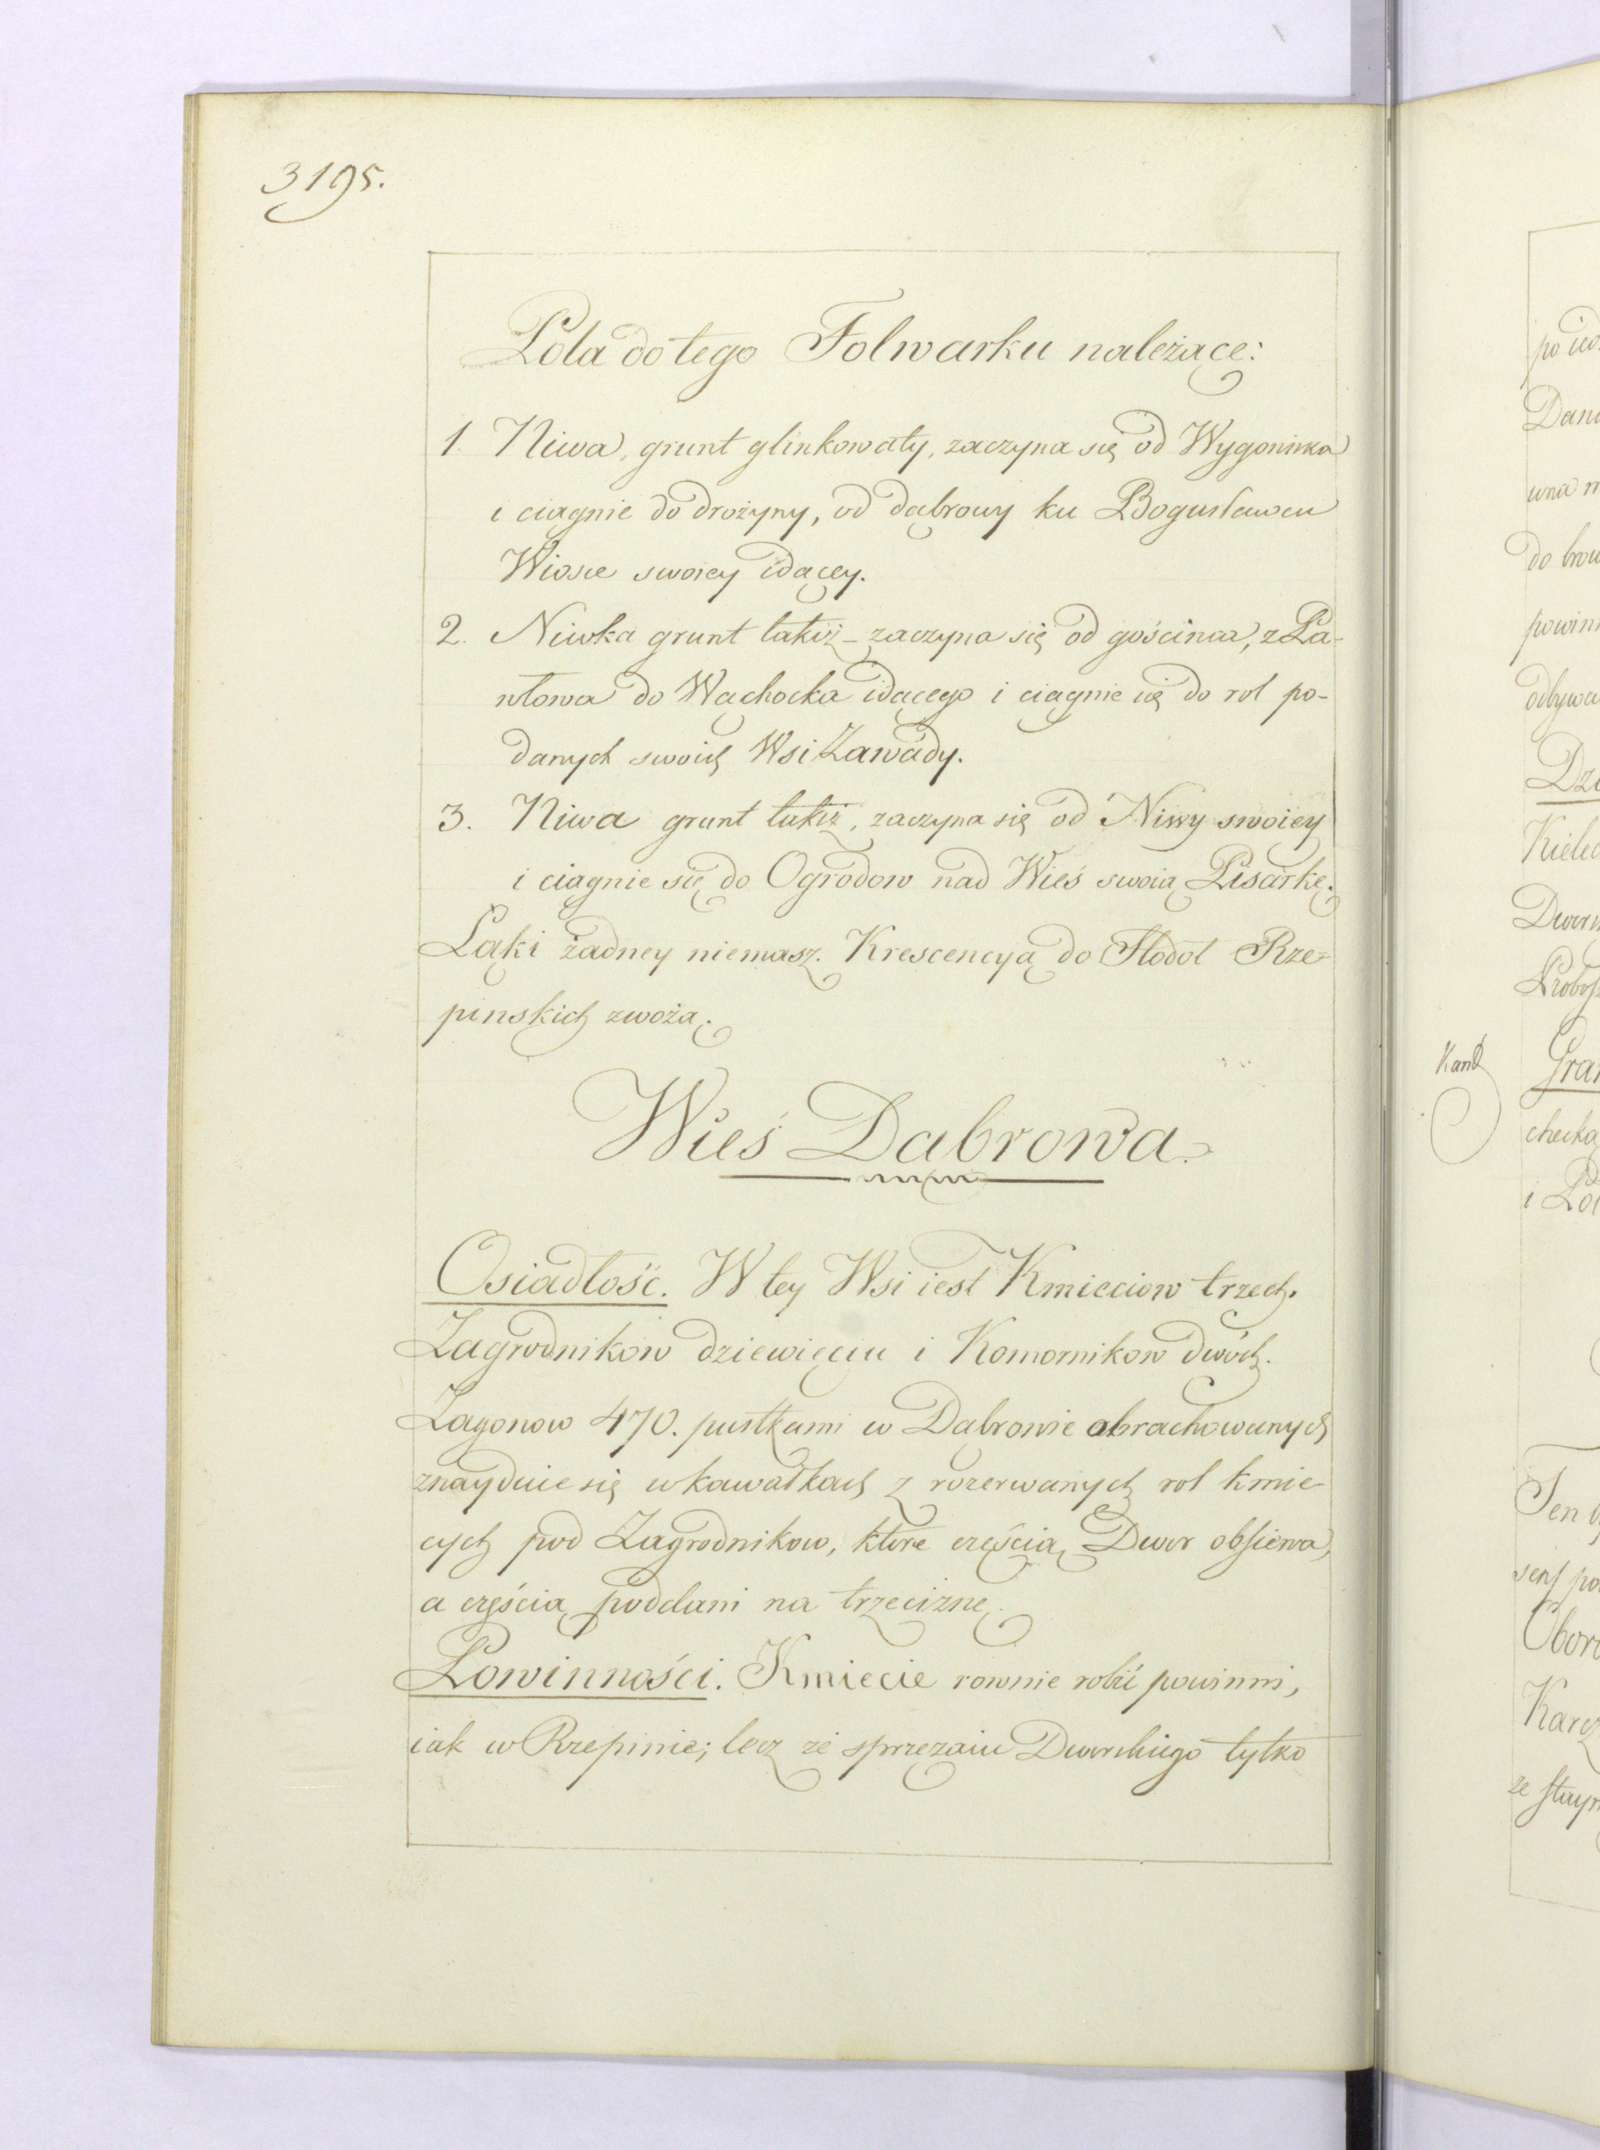 3195.
Pola do tego Folwarku należące:
1. Niwa, grunt glinkowaty, zaczyna się od Wygonika
i ciągnie do drożyny, od dąbrowy ku Bogusławcu
Wiosce swoiey idącey.
2. Niwka grunt takiż – zaczyna się od gościńca, z Pa-
włowa do Wąchocka idącego i ciągnie się do rol po-
danych swoich Wsi Zawady.
3. Niwa grunt takiż, zaczyna się od Niwy swoiey
i ciągnie się do Ogrodow nad Wieś swoią Pisarkę.
Łąki żadney niemasz. Krescencyą do Stodoł Rze-
pinskich zwożą.
Wieś Dąbrowa.
Osiadłość. W tey Wsi iest Kmieciow trzech.
Zagrodnikow dziewięciu i Komornikow dwóch.
Zagonow 470. pustkami w Dąbrowie obrachowanych
znayduie się w kawałkach z rozerwanych rol kmie-
cych pod Zagrodnikow, które częścią Dwor obsiewa,
a częścią poddani na trzeciznę.
Powinności. Kmiecie rownie robić powinni,
iak w Rzepinie; lecz że sprzężaiu Dworskiego tylko
Kant
po
Dani
do brow
powinn
odbywa
Kielec
Dwors
Gran
checka
i Pol
Ten
Obor
Karcz
ze stayn